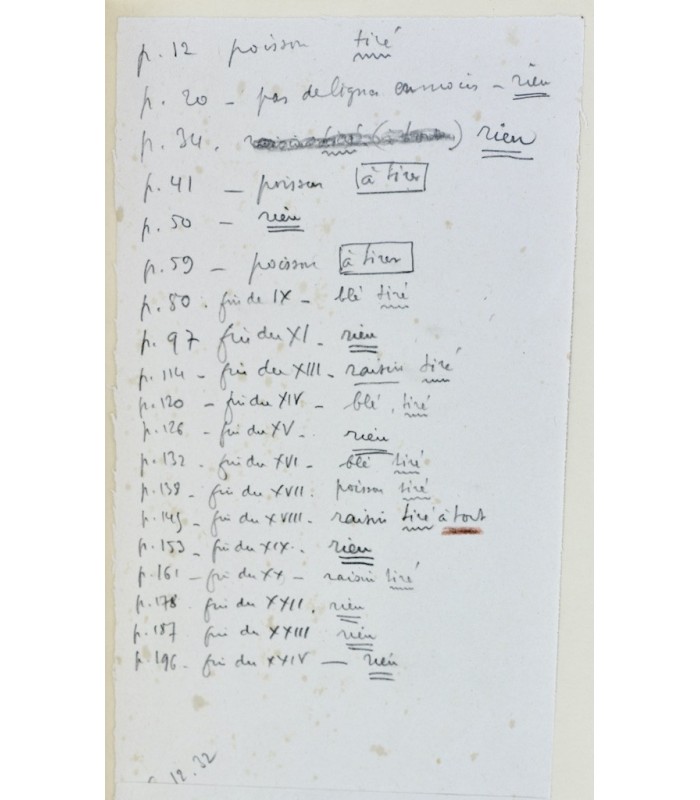 p. 12 poisson tiré
p. 20 - pas de ligna en mois - rien
p. 34. rien
p. 41 - poisson à tirer
p. 50 - rien
p. 59 - poisson à tirer
p. 80. fin de IX - blé tiré
p. 97 fin du XI. rien
p. 114 - fin du XIII - raisin tiré
p. 120 - fin du XIV - blé, tiré
p. 126 - fin du XV - rien
p. 132. fin du XVI - blé tiré
p. 138 - fin du XVII. poisson tiré
p. 145 - fin du XVIII. raisin tiré à tort
p. 153 - fin du XIX. rien
p. 161 - fin du XX - raisin tiré
p. 178. fin du XXII. rien
p. 187 fin du XXIII rien
p. 196 - fin du XXIV - rien
12.32